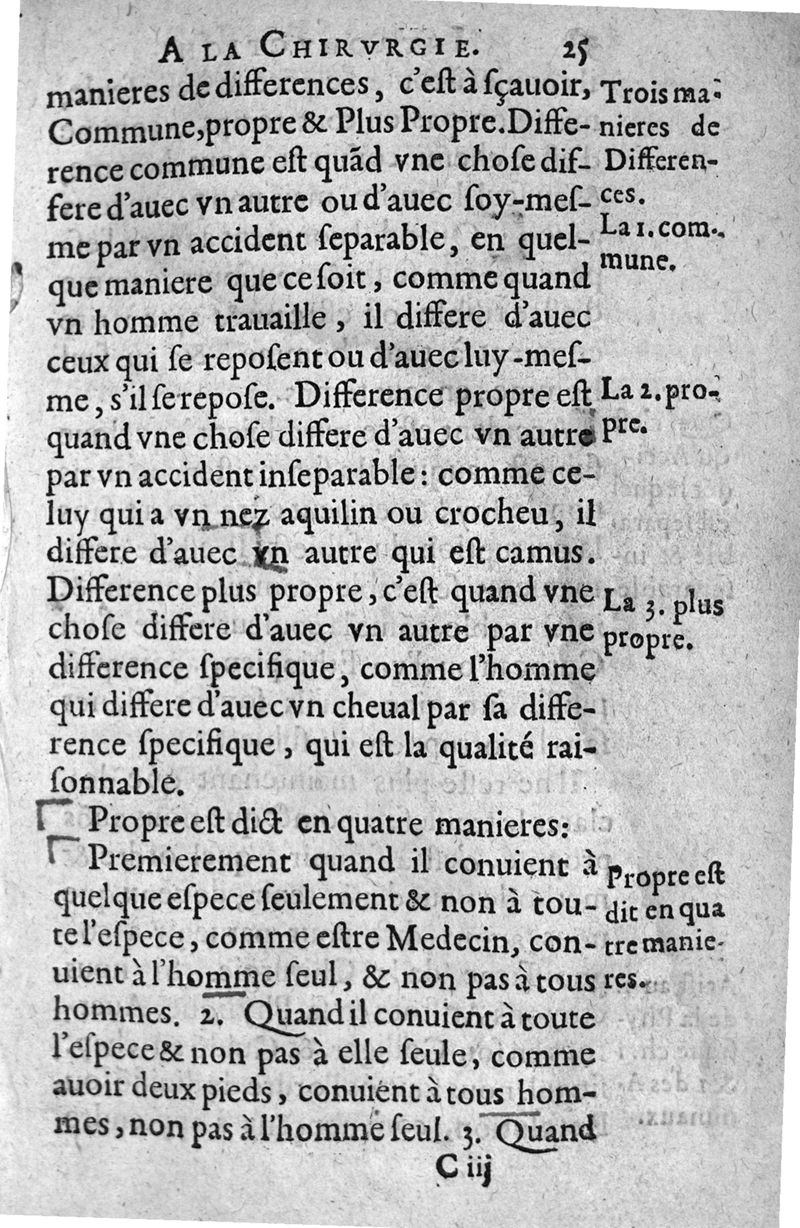 A LA CHIRVRGIE. 25
manieres de differences, c'eſt à ſçauoir,
Commune, propre & Plus Propre. Diffe-
rence commune eſt quãd vne choſe dif-
fere d'auec vn autre ou d'auec ſoy-meſ-
me par vn accident ſeparable, en quel-
que maniere que ce ſoit, comme quand
vn homme trauaille, il differe d'auec
ceux qui ſe repoſent ou d'auec luy-meſ-
me, s'il ſe repoſe. Difference propre eſt
quand vne choſe differe d'auec vn autre
par vn accident inſeparable: comme ce-
luy qui a vn nez aquilin ou crocheu, il
differe d'auec vn autre qui eſt camus.
Difference plus propre, c'eſt quand vne
choſe differe d'auec vn autre par vne
difference ſpecifique, comme l'homme
qui differe d'auec vn cheual par ſa diffe-
rence ſpecifique, qui eſt la qualité rai-
ſonnable.
Propre eſt dict en quatre manieres:
Premierement quand il conuient à
quelque eſpece ſeulement & non à tou-
te l'eſpece, comme eſtre Medecin, con-
uient à l'homme ſeul, & non pas à tous
hommes. 2. Quand il conuient à toute
l'eſpece & non pas à elle ſeule, comme
auoir deux pieds, conuient à tous hom-
mes, non pas à l'homme ſeul. 3. Quand
C iij
Trois ma-
nieres de
Differen-
ces.
La 1. com-
mune.
La 2. pro-
pre.
La 3. plus
propre.
Propre eſt
dit en qua
tre manie-
res.